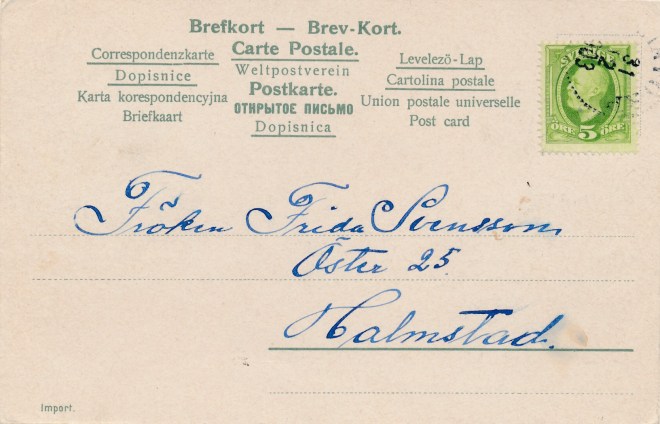 Brefkort — Brev-Kort.
Correspondenzkarte
Carte Postale.
Levelezö-Lap
Dopisnice
Weltpostverein
Cartolina postale
Karta korespondencyjna
Postkarte.
Union postale universelle
Briefkaart
ОТКРЫТОЕ ПИСЬМО
Post card
Dopisnica
31
12
03
ÖRE 5 ÖRE
Fröken Frida Svensson
Öster 25
Halmstad.
Import.